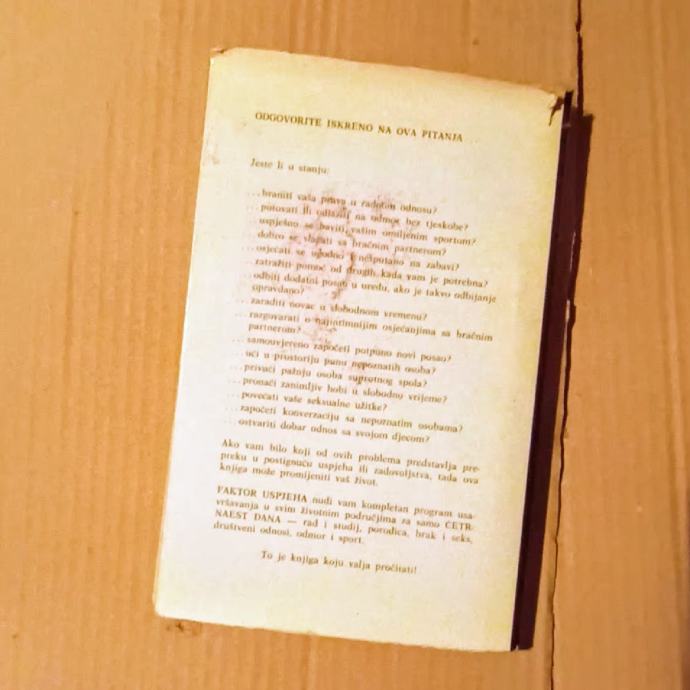 ODGOVORITE ISKRENO NA OVA PITANJA ...
Jeste li u stanju:
...braniti vaša prava u radnom odnosu?
...putovati ili odlaziti na odmor bez tjeskobe?
...uspješno se baviti vašim omiljenim sportom?
...dobro se slagati sa bračnim partnerom?
...osjećati se ugodno i nesputano na zabavi?
...zatražiti pomoć od drugih kada vam je potrebna?
...odbiti dodatni posao u uredu, ako je takvo odbijanje
opravdano?
...zaraditi novac u slobodnom vremenu?
...razgovarati o najintimnijim osjećanjima sa bračnim
partnerom?
...samouvjereno započeti potpuno novi posao?
...ući u prostoriju punu nepoznatih osoba?
...privući pažnju osoba suprotnog spola?
...pronaći zanimljiv hobi u slobodno vrijeme?
...povećati vaše seksualne užitke?
...započeti konverzaciju sa nepoznatim osobama?
...ostvariti dobar odnos sa svojom djecom?
Ako vam bilo koji od ovih problema predstavlja pre-
preku u postignuću uspjeha ili zadovoljstva, tada ova
knjiga može promijeniti vaš život.
FAKTOR USPJEHA nudi vam kompletan program usa-
vršavanja u svim životnim područjima za samo ČETR-
NAEST DANA — rad i studij, porodica, brak i seks,
društveni odnosi, odmor i sport.
To je knjiga koju valja pročitati!